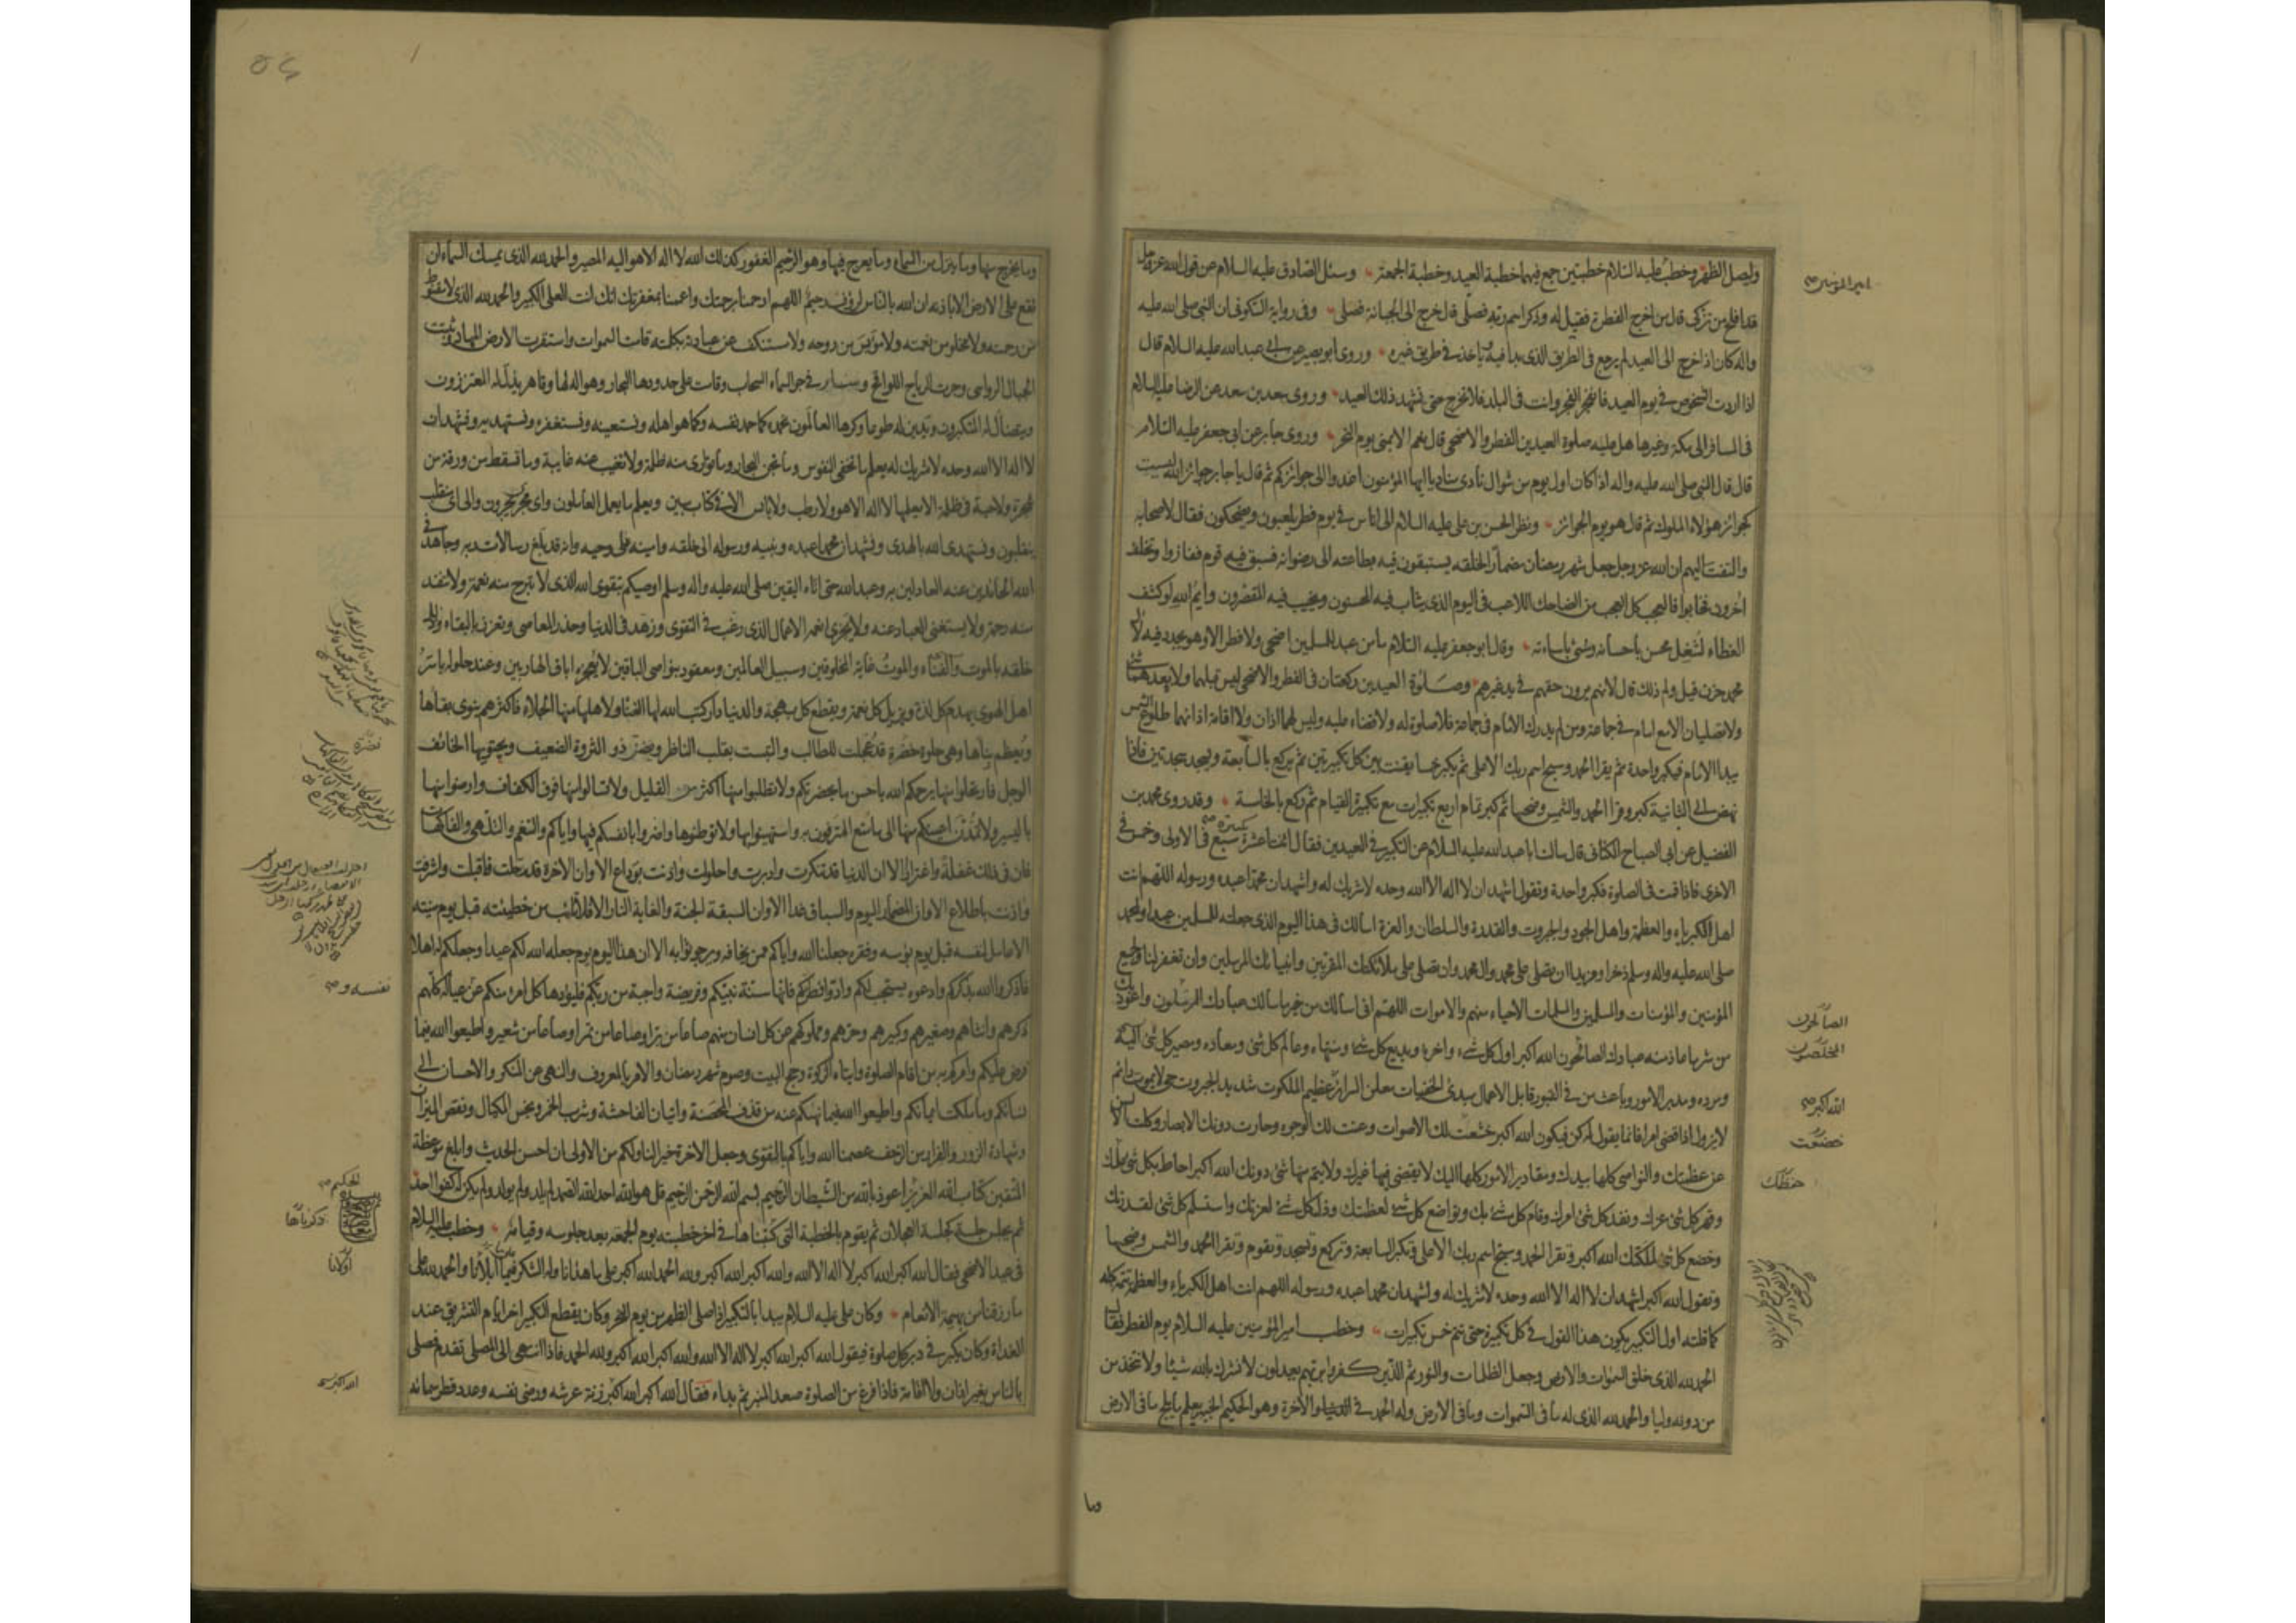 وليصل الظهر وخطب عليه السلام خطبتين جمع فيهما خطبة العيد وخطبة الجمعة وسئل الصادق عليه السلام عن قول الله عز وجل
قد افلح من تزكى قال من اخرج الفطرة فقيل له وذكر اسم ربه فصلى قال خرج الى الجبانة فصلى وفى رواية السكونى ان النبى صلى الله عليه
واله كان اذا خرج الى العيد لم يرجع فى الطريق الذى بدا فيه ياخذ فى طريق غيره وروى ابو بصير عن ابى عبد الله عليه السلام قال
اذا اردت الشخوص فى يوم العيد فانفجر الفجر وانت فى البلد فلا تخرج حتى تشهد ذلك العيد وروى سعد بن سعد عن الرضا عليه السلام
فى المسافر الى مكة وغيرها هل عليه صلوة العيدين الفطر والاضحى قال نعم الا بمنى يوم النحر وروى جابر عن ابى جعفر عليه السلام
قال قال النبى صلى الله عليه واله اذا كان اول يوم من شوال نادى مناد يا ايها المؤمنون اغدوا الى جوائزكم ثم قال يا جابر جوائز الله ليست
كجوائز هؤلاء الملوك ثم قال هو يوم الجوائز ونظر الحسن بن على عليه السلام الى اناس فى يوم فطر يلعبون ويضحكون فقال لاصحابه
والتفت اليهم ان الله عز وجل جعل شهر رمضان مضمارا لخلقه يستبقون فيه بطاعته الى رضوانه فسبق فيه قوم ففازوا وتخلف
اخرون فخابوا فالعجب كل العجب من الضاحك اللاعب فى اليوم الذى يثاب فيه المحسنون ويخيب فيه المقصرون وايم الله لو كشف
الغطاء لشغل محسن باحسانه ومسئ باساءته وقال ابو جعفر عليه السلام ما من عيد للمسلمين اضحى ولا فطر الا وهو يجدد فيه لال
محمد حزن قيل ولم ذلك قال لانهم يرون حقهم فى يد غيرهم وصلوة العيدين ركعتان فى الفطر والاضحى ليس قبلهما ولا بعدهما شئ
ولا تصليان الا مع امام فى جماعة ومن لم يدرك الامام فى جماعة فلا صلوة له ولا قضاء عليه وليس لهما اذان ولا اقامة اذانهما طلوع الشمس
يبدا الامام فيكبر واحدة ثم يقرا الحمد وسبح اسم ربك الاعلى ثم يكبر خمسا يقنت بين كل تكبيرتين ثم يركع بالسابعة ويسجد سجدتين فاذا
نهض الى الثانية كبر وقرا الحمد والشمس وضحيها ثم كبر تمام اربع تكبيرات مع تكبيرة القيام ثم ركع بالخامسة وقد روى محمد بن
الفضيل عن ابى الصباح الكنانى قال سالت ابا عبد الله عليه السلام عن التكبير فى العيدين فقال اثنتا عشرة سبع فى الاولى وخمس فى
الاخرى فاذا قمت فى الصلوة فكبر واحدة وتقول اشهد ان لا اله الا الله وحده لا شريك له واشهد ان محمدا عبده ورسوله اللهم انت
اهل الكبرياء والعظمة واهل الجود والجبروت والقدرة والسلطان والعزة اسالك فى هذا اليوم الذى جعلته للمسلمين عيدا ولمحمد
صلى الله عليه واله وسلم ذخرا ومزيدا ان تصلى على محمد وال محمد وان تصلى على ملائكتك المقربين وانبيائك المرسلين وان تغفر لنا ولجميع
المؤمنين والمؤمنات والمسلمين والمسلمات الاحياء منهم والاموات اللهم انى اسالك من خير ما سالك عبادك المرسلون واعوذ بك
من شر ما عاذ منه عبادك الصالحون الله اكبر اول كل شئ واخره وبديع كل شئ ومنتهاه وعالم كل شئ ومعاده ومصير كل شئ اليه
ومرده ومدبر الامور وباعث من فى القبور قابل الاعمال مبدئ الخفيات معلن السرائر عظيم الملكوت شديد الجبروت حى لا يموت دائم
لا يزول اذا قضى امرا فانما يقول له كن فيكون الله اكبر خشعت لك الاصوات وعنت لك الوجوه وحارت دونك الابصار وكلت الالسن
عن عظمتك والنواصى كلها بيدك ومقادير الامور كلها اليك لا يقضى فيها غيرك ولا يتم منها شئ دونك الله اكبر احاط بكل شئ
وقهر كل شئ عزك ونفذ كل شئ امرك وقام كل شئ بك وتواضع كل شئ لعظمتك وذل كل شئ لعزتك واستسلم كل شئ لقدرتك
وخضع كل شئ لملكك الله اكبر وتقرا الحمد وسبح اسم ربك الاعلى وتكبر السابعة وتركع وتسجد وتقوم وتقرا الحمد والشمس وضحيها
وتقول الله اكبر اشهد ان لا اله الا الله وحده لا شريك له واشهد ان محمدا عبده ورسوله اللهم انت اهل الكبرياء والعظمة تتمه كله
كما قلته اول التكبير يكون هذا القول فى كل تكبيرة حتى تتم خمس تكبيرات وخطب امير المؤمنين عليه السلام يوم الفطر فقال
الحمد لله الذى خلق السموات والارض وجعل الظلمات والنور ثم الذين كفروا بربهم يعدلون لا نشرك بالله شيئا ولا نتخذ من
من دونه وليا والحمد لله الذى له ما فى السموات وما فى الارض وله الحمد فى الدنيا والاخرة وهو الحكيم الخبير يعلم ما يلج فى الارض
وما
امير المؤمنين
الصالحون
المخلصون
الله اكبر
خضعت
حفظك
وما يخرج منها وما ينزل من السماء وما يعرج فيها وهو الرحيم الغفور كذلك الله لا اله الا هو اليه المصير والحمد لله الذى يمسك السماء ان
تقع على الارض الا باذنه ان الله بالناس لرؤف رحيم اللهم ارحمنا برحمتك واعممنا بمغفرتك انك انت العلى الكبير والحمد لله الذى لا مقنوط
من رحمته ولا مخلو من نعمته ولا مؤيس من روحه ولا مستنكف عن عبادته بكلمته قامت السموات واستقرت الارض المهاد وثبتت
الجبال الرواسى وجرت الرياح اللواقح وسار فى جو السماء السحاب وقامت على حدودها البحار وهو اله لها وقاهر يذل له المتعززون
ويتضاءل له المتكبرون ويدين له طوعا وكرها العالمون نحمده كما حمد نفسه وكما هو اهله ونستعينه ونستغفره ونستهديه ونشهد ان
لا اله الا الله وحده لا شريك له يعلم ما تخفى النفوس وما تجن البحار وما توارى منه ظلمة ولا تغيب عنه غايبة وما تسقط من ورقة من
شجرة ولا حبة فى ظلمة الا يعلمها لا اله الا هو ولا رطب ولا يابس الا فى كتاب مبين ويعلم ما يعمل العاملون واى مجرى يجرون والى اى منقلب
ينقلبون ونستهدى الله بالهدى ونشهد ان محمدا عبده ونبيه ورسوله الى خلقه وامينه على وحيه وانه قد بلغ رسالات ربه وجاهد فى
الله الحائدين عنه العادلين به وعبد الله حتى اتاه اليقين صلى الله عليه واله وسلم اوصيكم بتقوى الله الذى لا تبرح منه نعمة ولا تنفد
منه رحمة ولا يستغنى العباد عنه ولا يجزى انعمه الاعمال الذى رغب فى التقوى وزهد فى الدنيا وحذر المعاصى وتعزز بالبقاء وذلل
خلقه بالموت والفناء والموت غاية المخلوقين وسبيل العالمين ومعقود بنواصى الباقين لا يعجزه اباق الهاربين وعند حلوله ياسر
اهل الهوى يهدم كل لذة ويزيل كل نعمة ويقطع كل بهجة والدنيا دار كتب الله لها الفناء ولاهلها منها الجلاء فاكثرهم ينوى بقاءها
ويعظم بناءها وهى حلوة خضرة قد عجلت للطالب والتبست بقلب الناظر ويضنى ذو الثروة الضعيف ويجتويها الخائف
الوجل فارتحلوا منها يرحمكم الله باحسن ما بحضرتكم ولا تطلبوا منها اكثر من القليل ولا تسالوا منها فوق الكفاف وارضوا منها
باليسير ولا تمدن اعينكم منها الى ما متع المترفون به واستهينوا بها ولا توطنوها واضروا بانفسكم فيها واياكم والتنعم والتلهى والفاكهات
فان فى ذلك غفلة واغترارا الا ان الدنيا قد تنكرت وادبرت واحلولت واذنت بوداع الا وان الاخرة قد رحلت فاقبلت واشرفت
واذنت باطلاع الا وان المضمار اليوم والسباق غدا الا وان السبقة الجنة والغاية النار الا افلا تائب من خطيئته قبل يوم منيته
الا عامل لنفسه قبل يوم بؤسه وفقره جعلنا الله واياكم ممن يخافه ويرجو ثوابه الا ان هذا اليوم يوم جعله الله لكم عيدا وجعلكم له اهلا
فاذكروا الله يذكركم وادعوه يستجب لكم وادوا فطرتكم فانها سنة نبيكم وفريضة واجبة من ربكم فليؤدها كل امرئ منكم عن عياله كلهم
ذكرهم وانثاهم وصغيرهم وكبيرهم وحرهم ومملوكهم عن كل انسان منهم صاعا من بر او صاعا من تمر او صاعا من شعير واطيعوا الله فيما
فرض عليكم وامركم به من اقام الصلوة وايتاء الزكوة وحج البيت وصوم شهر رمضان والامر بالمعروف والنهى عن المنكر والاحسان الى
نسائكم وما ملكت ايمانكم واطيعوا الله فيما نهيكم عنه من قذف المحصنة واتيان الفاحشة وشرب الخمر وبخس المكيال ونقص الميزان
وشهادة الزور والفرار من الزحف عصمنا الله واياكم بالتقوى وجعل الاخرة خيرا لنا ولكم من الاولى ان احسن الحديث وابلغ موعظة
المتقين كتاب الله العزيز اعوذ بالله من الشيطان الرجيم بسم الله الرحمن الرحيم قل هو الله احد الله الصمد لم يلد ولم يولد ولم يكن له كفوا احد
ثم يجلس جلسة كجلسة العجلان ثم يقوم بالخطبة التى كتبناها فى اخر خطبته يوم الجمعة بعد جلوسه وقيامه وخطب عليه السلام
فى عيد الاضحى فقال الله اكبر الله اكبر لا اله الا الله والله اكبر الله اكبر ولله الحمد الله اكبر على ما هدانا وله الشكر فيما ابلانا والحمد لله على
ما رزقنا من بهيمة الانعام وكان على عليه السلام يبدا بالتكبير اذا صلى الظهر من يوم النحر وكان يقطع التكبير اخر ايام التشريق عند
الغداة وكان يكبر فى دبر كل صلوة فيقول الله اكبر الله اكبر لا اله الا الله والله اكبر الله اكبر ولله الحمد فاذا انتهى الى المصلى تقدم فصلى
بالناس بغير اذان ولا اقامة فاذا فرغ من الصلوة صعد المنبر ثم بداء فقال الله اكبر الله اكبر زنة عرشه ورضى نفسه وعدد قطر سمائه
نضرة
نفسه و
الحكيم
ذكرناها
اولانا
الله اكبر